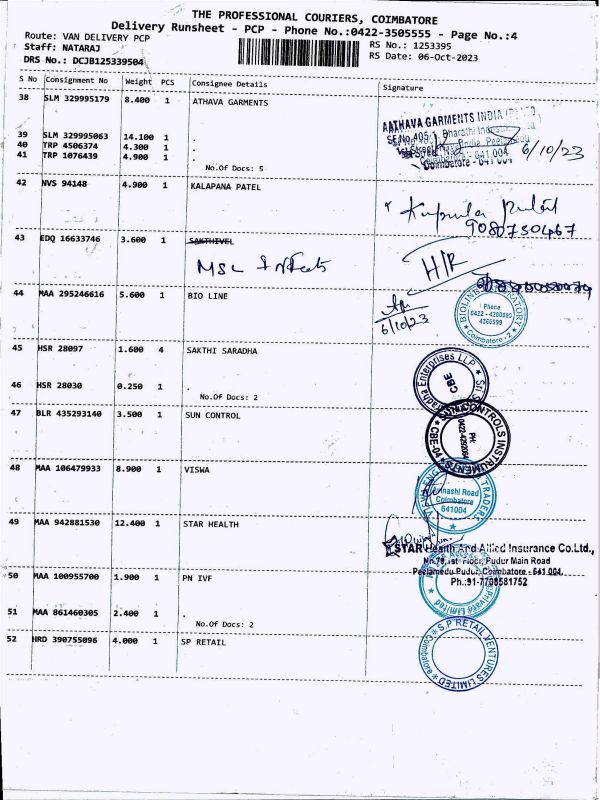 THE PROFESSIONAL COURIERS, COIMBATORE
Delivery Runsheet - PCP - Phone No.:0422-3505555 - Page No.:4
Route: VAN DELIVERY PCP
Staff: NATARAJ
DRS No.: DCJB125339504
RS No.: 1253395
RS Date: 06-Oct-2023
S No Consignment No Weight PCS Consignee Details Signature
38 SLM 329995179 8.400 1 ATHAVA GARMENTS
AATHAVA GARMENTS INDIA
39 SLM 329995063 14.100 1 .
40 TRP 4506374 4.300 1 .
41 TRP 1076439 4.900 1 .
No.Of Docs: 5
Coimbatore - 641 004
6/10/23
42 NVS 94148 4.900 1 KALAPANA PATEL
9080750467
43 EDQ 16633746 3.600 1 SAKTHIVEL
MSL
H/R
44 MAA 295246616 5.600 1 BIO LINE
6/10/23
Phone
0422 - 4200099
4366999
Coimbatore - 2
45 HSR 28097 1.600 4 SAKTHI SARADHA
46 HSR 28030 0.250 1 .
No.Of Docs: 2
Enterprises LLP
CBE
47 BLR 435293140 3.500 1 SUN CONTROL
SUN CONTROLS INSTRUMENTS
CBE-04
PH:
48 MAA 106479933 8.900 1 VISWA
TRADERS
Avinashi Road
Coimbatore
641004
49 MAA 942881530 12.400 1 STAR HEALTH
STAR Health And Allied Insurance Co.Ltd.,
No.79, 1st Floor, Pudur Main Road
Peelamedu Pudur, Coimbatore - 641 004.
Ph.:91-7708581752
50 MAA 100955700 1.900 1 PN IVF
Private Limited
51 MAA 861460305 2.400 1 .
No.Of Docs: 2
52 HRD 390755096 4.000 1 SP RETAIL
S.P RETAIL VENTURES LIMITED
Coimbatore